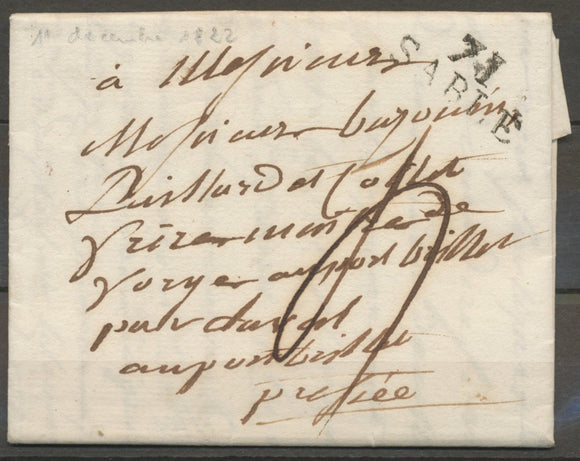 1er décembre 1822
71
SABLE
à Messieurs
Messieurs bazouin
Paillard et Collet
frère maitre de
forge au port brillet
par Laval
au port brillet
pressée